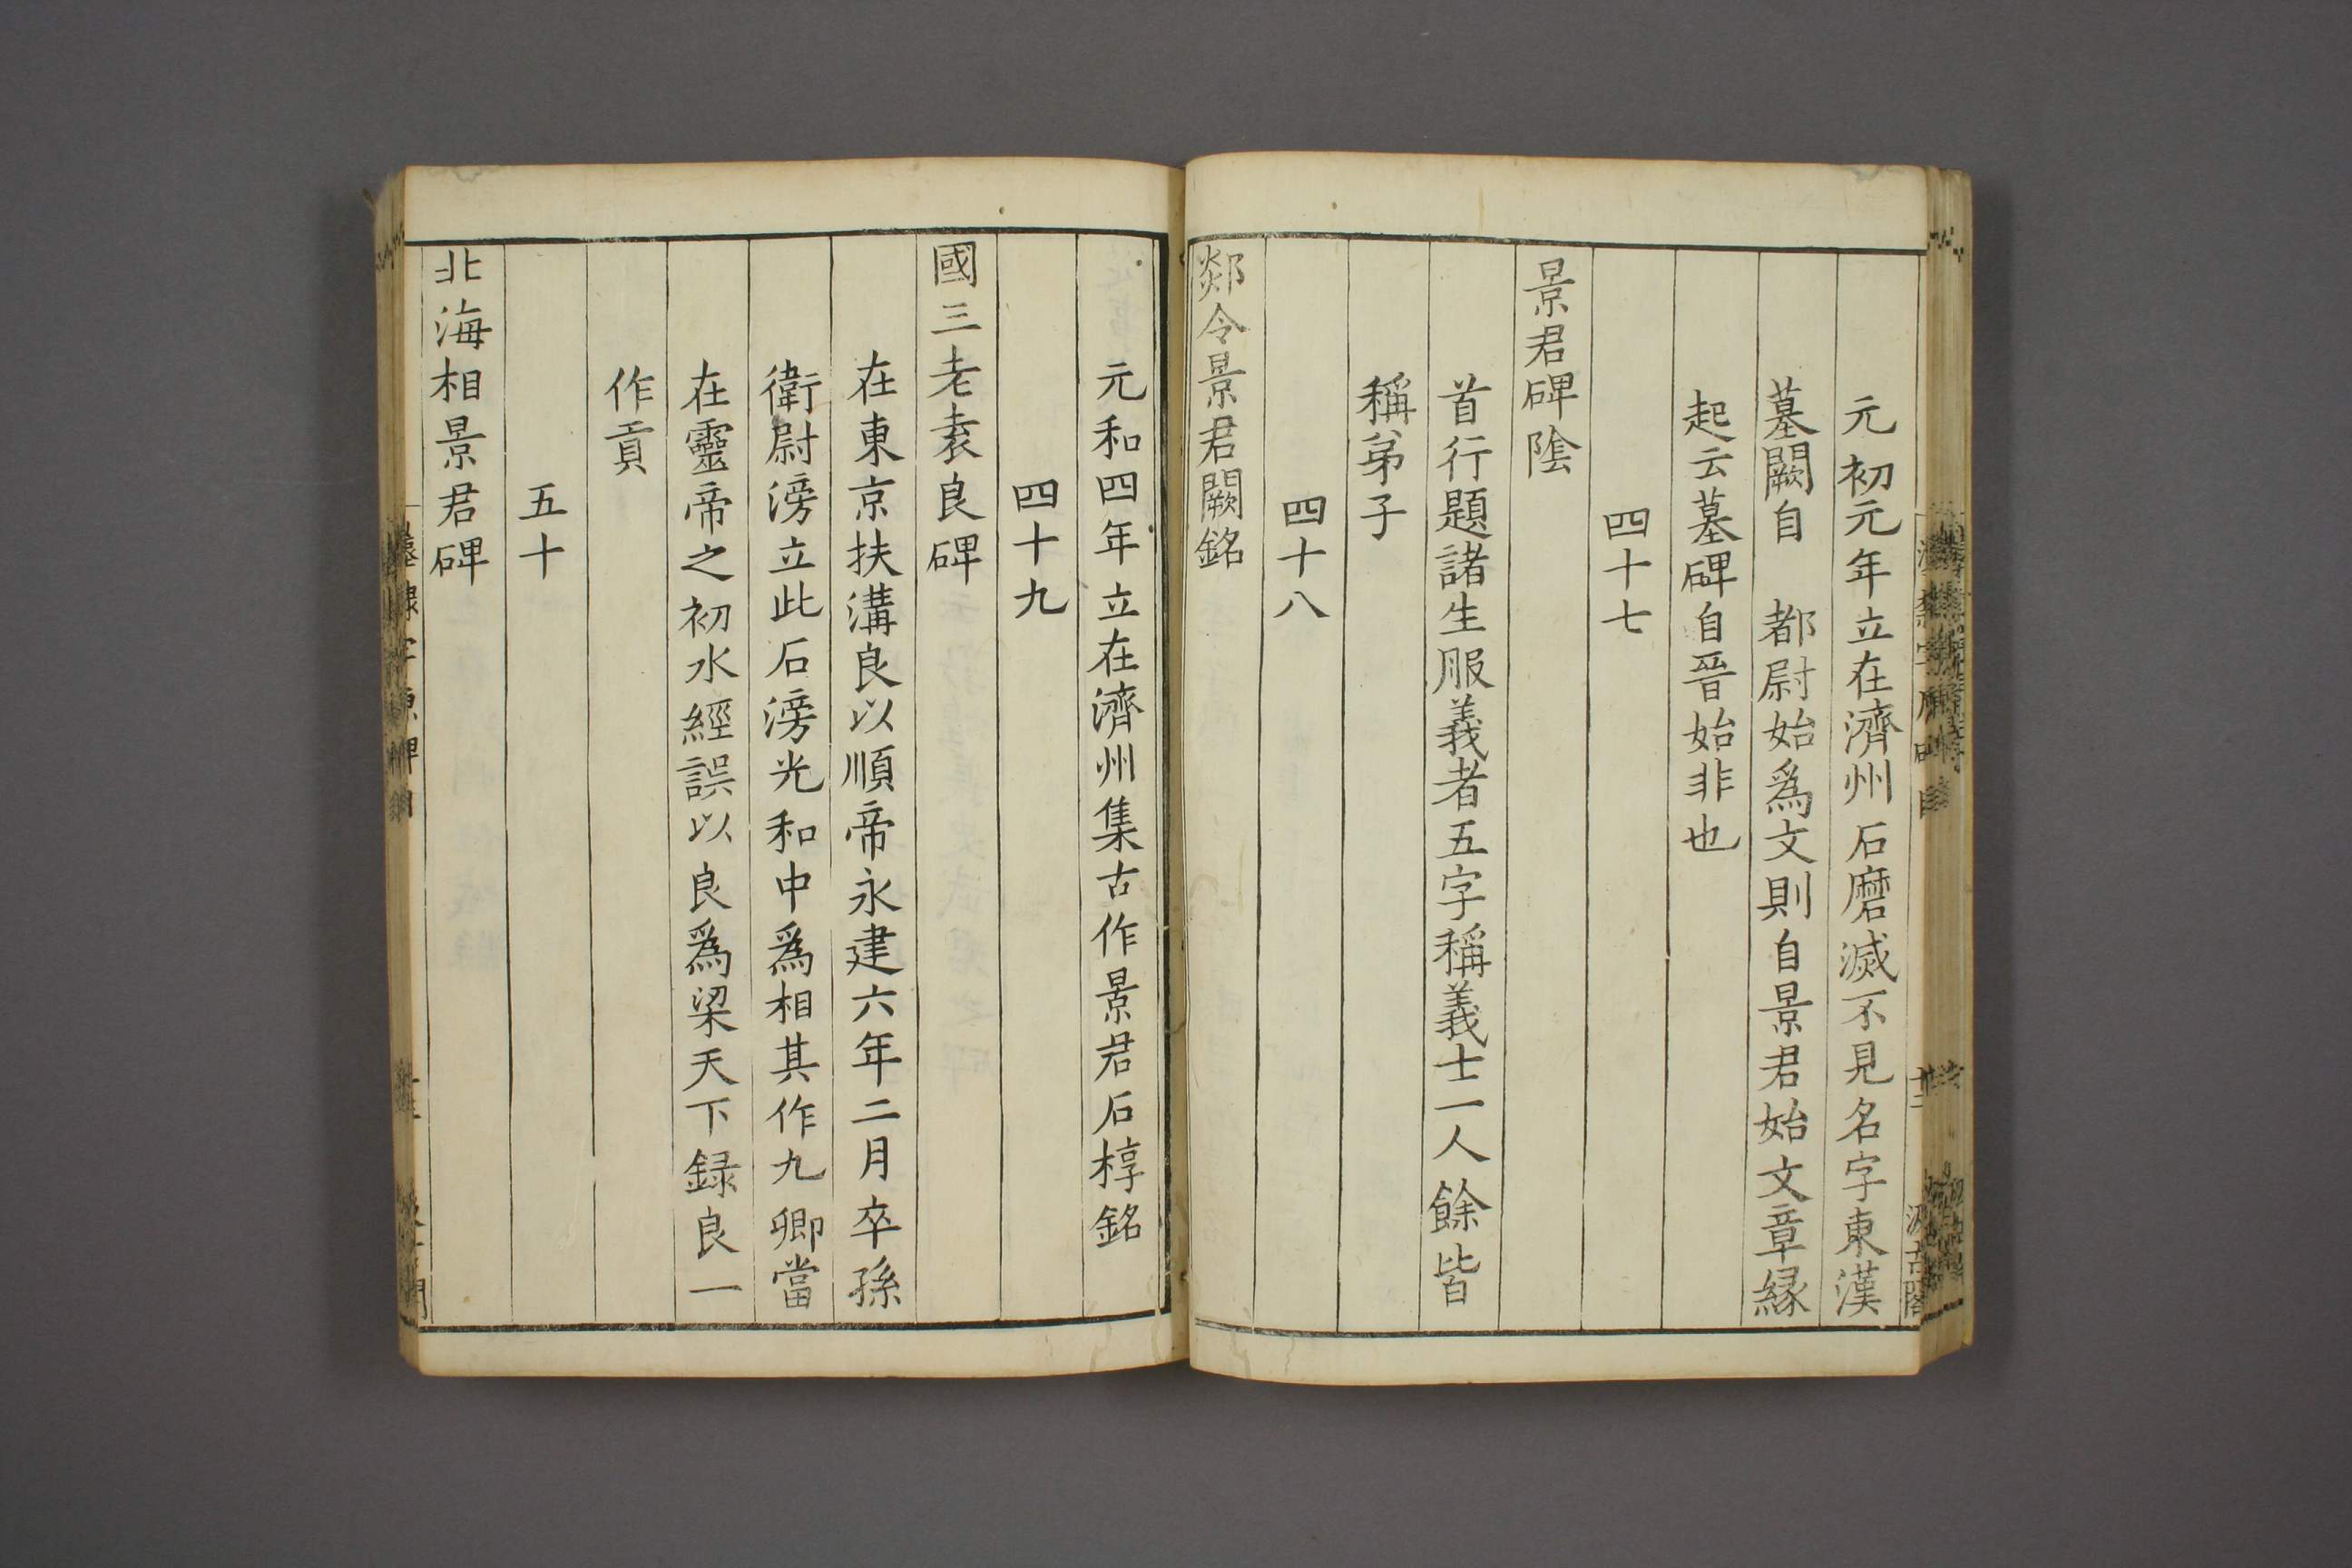 元初元年立在濟州石磨滅不見名字東漢
墓闕自　都尉始爲文則自景君始文章緣
起云墓碑自晉始非也
四十七
景君碑陰
首行題諸生服義者五字稱義士一人餘皆
稱弟子
四十八
郯令景君闕銘
元和四年立在濟州集古作景君石椁銘
四十九
國三老袁良碑
在東京扶溝良以順帝永建六年二月卒孫
衛尉滂立此石滂光和中爲相其作九卿當
在靈帝之初水經誤以良爲梁天下録良一
作貢
五十
北海相景君碑